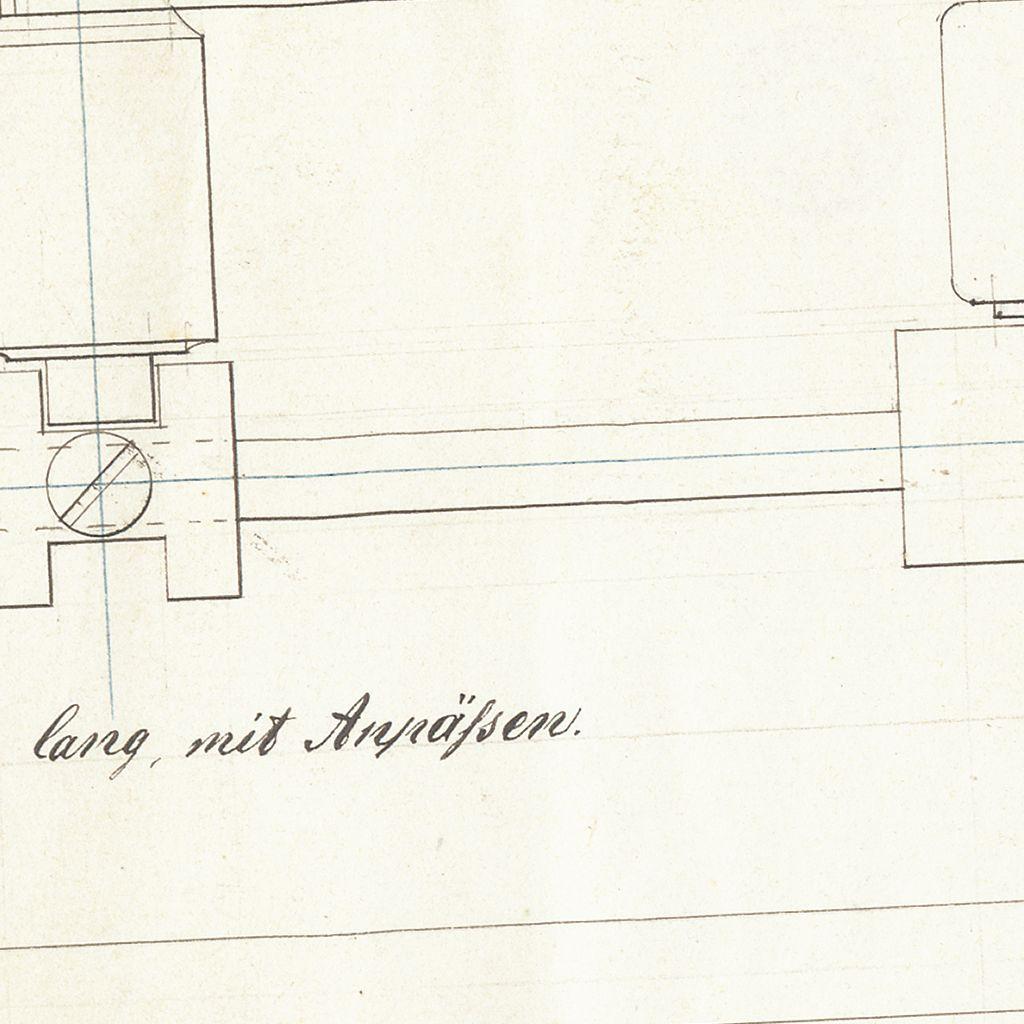 lang, mit Anpäßen.